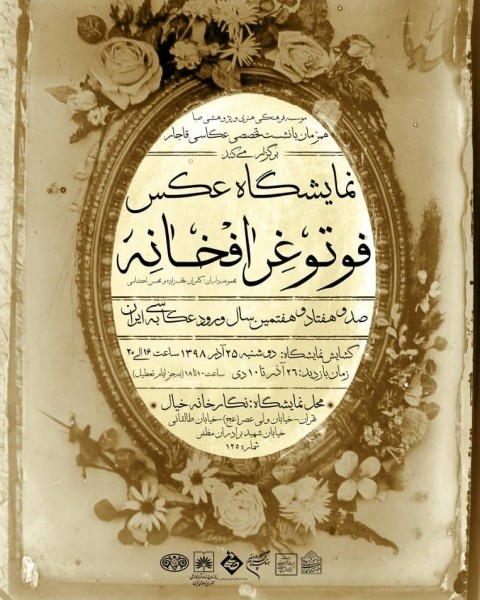 موسسه فرهنگی هنری و پژوهشی صبا
همزمان با نشست تخصصی عکاسی قاجار
برگزار می‌کند
نمایشگاه عکس
فوتوغرافخانه
مجموعه‌داران: کامران نجف‌زاده و محسن احتشامی
صد و هفتاد و هفتمین سال ورود عکاسی به ایران
گشایش نمایشگاه: دوشنبه ۲۵ آذر ۱۳۹۸ ساعت ۱۶ الی ۲۰
زمان بازدید: ۲۶ آذر تا ۱۰ دی ساعت ۱۰ تا ۱۸ (به‌جز ایام تعطیل)
محل نمایشگاه: نگارخانه خیال
تهران-خیابان ولی عصر (عج)-خیابان طالقانی
خیابان شهید برادران مظفر
شماره ۱۲۵